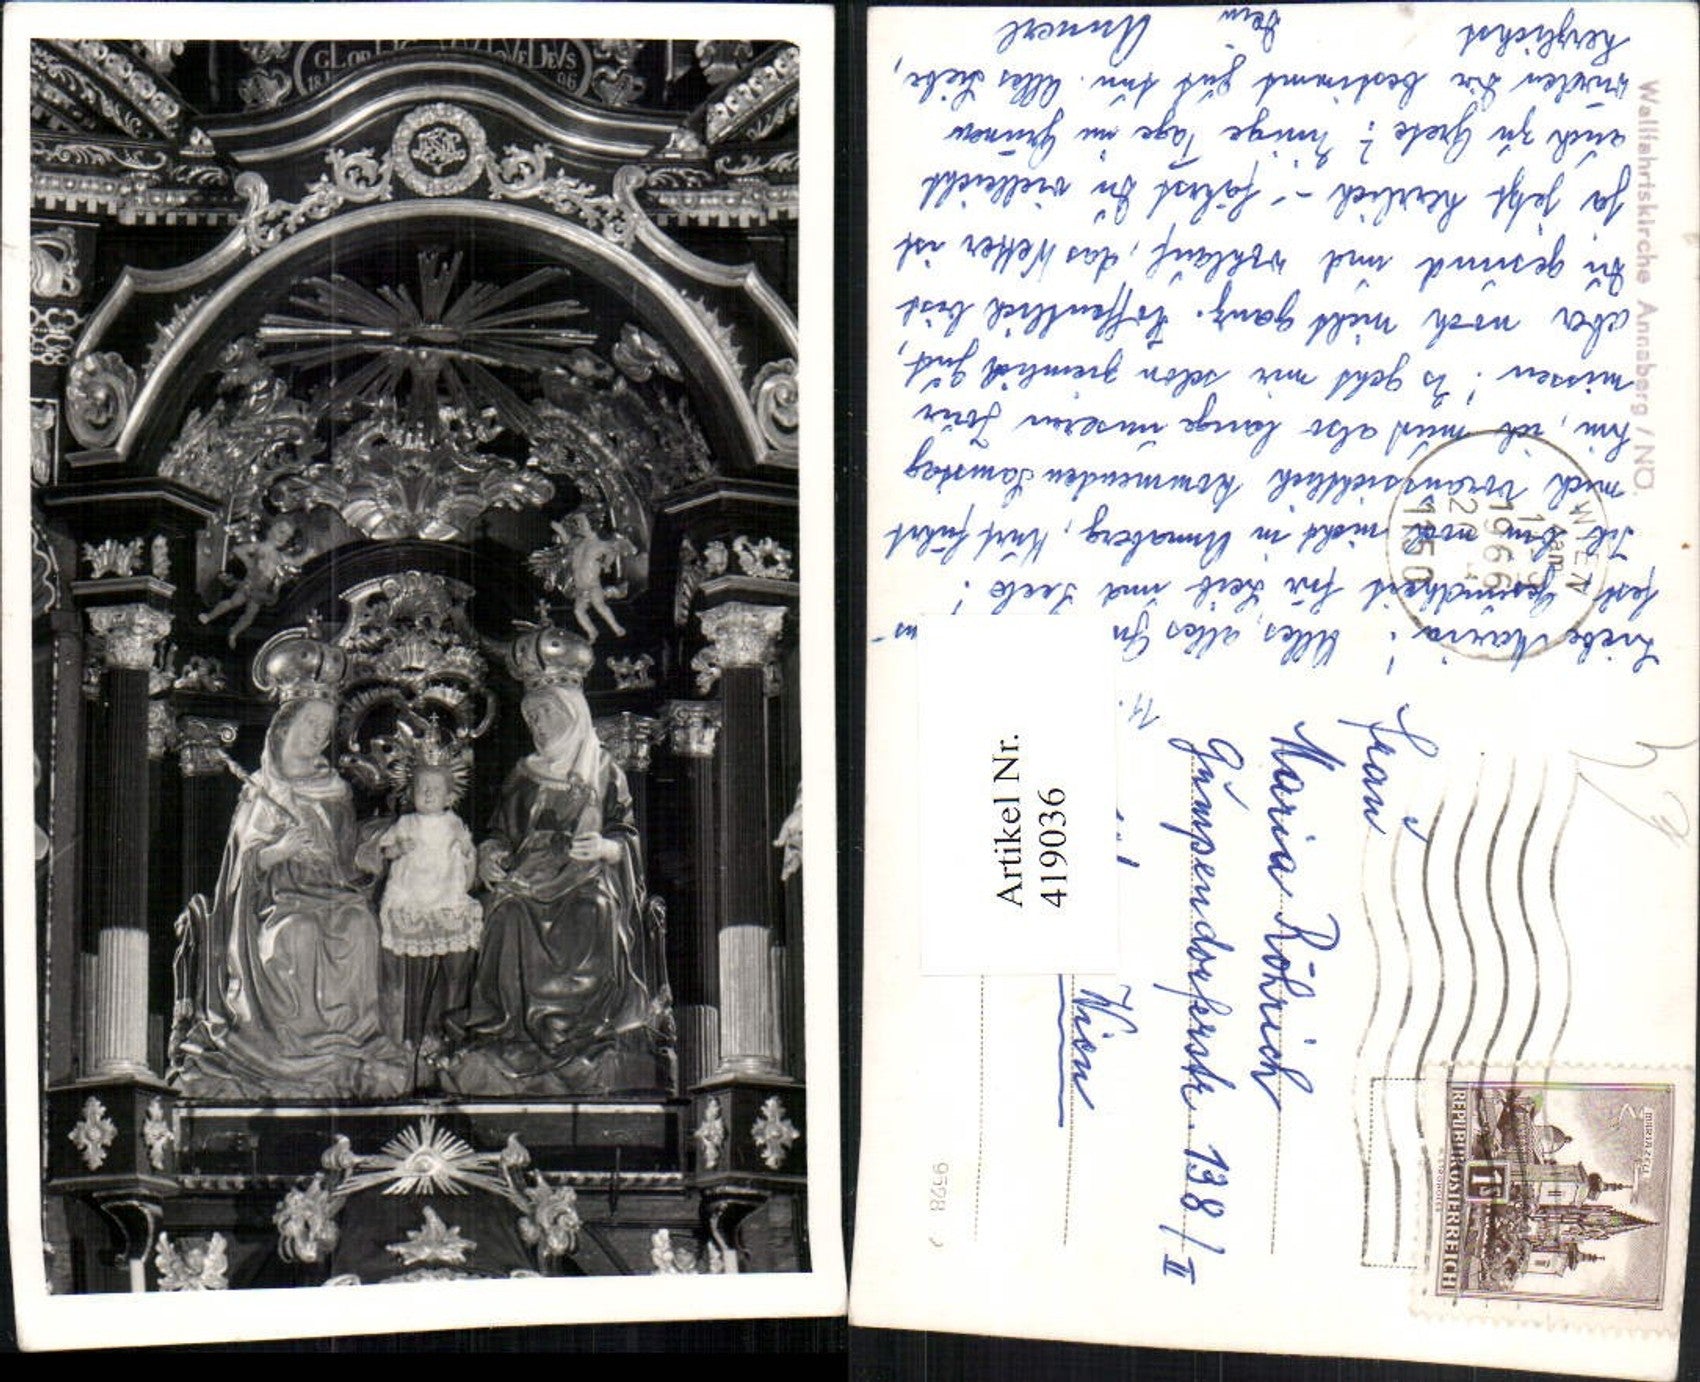 GLOR
DEVS
18
06
Wallfahrtskirche Annaberg / NÖ.
Liebe Maria! Alles, alles
Gesundheit für Leib und Seele!
Ich bin noch nicht in Annaberg, Kurt führt
mich voraussichtlich kommenden Samstag
hin, ich muß also lange unseren
missen! Es geht mir schon ziemlich gut,
aber noch nicht ganz. Hoffentlich bist
Du gesund und wohlauf, das Wetter ist
ja jetzt herrlich – fährst Du vielleicht
auch zu Grete? Einige Tage im Grünen
würden Dir bestimmt gut tun. Alles Liebe,
herzlichst
Dein Annerl
WIEN
1966
1150
Frau
Maria Röhrich
Gumpendorferstr. 138/II
Wien
Artikel Nr.
419036
9528
MARIAZELL
REPUBLIK ÖSTERREICH
1S